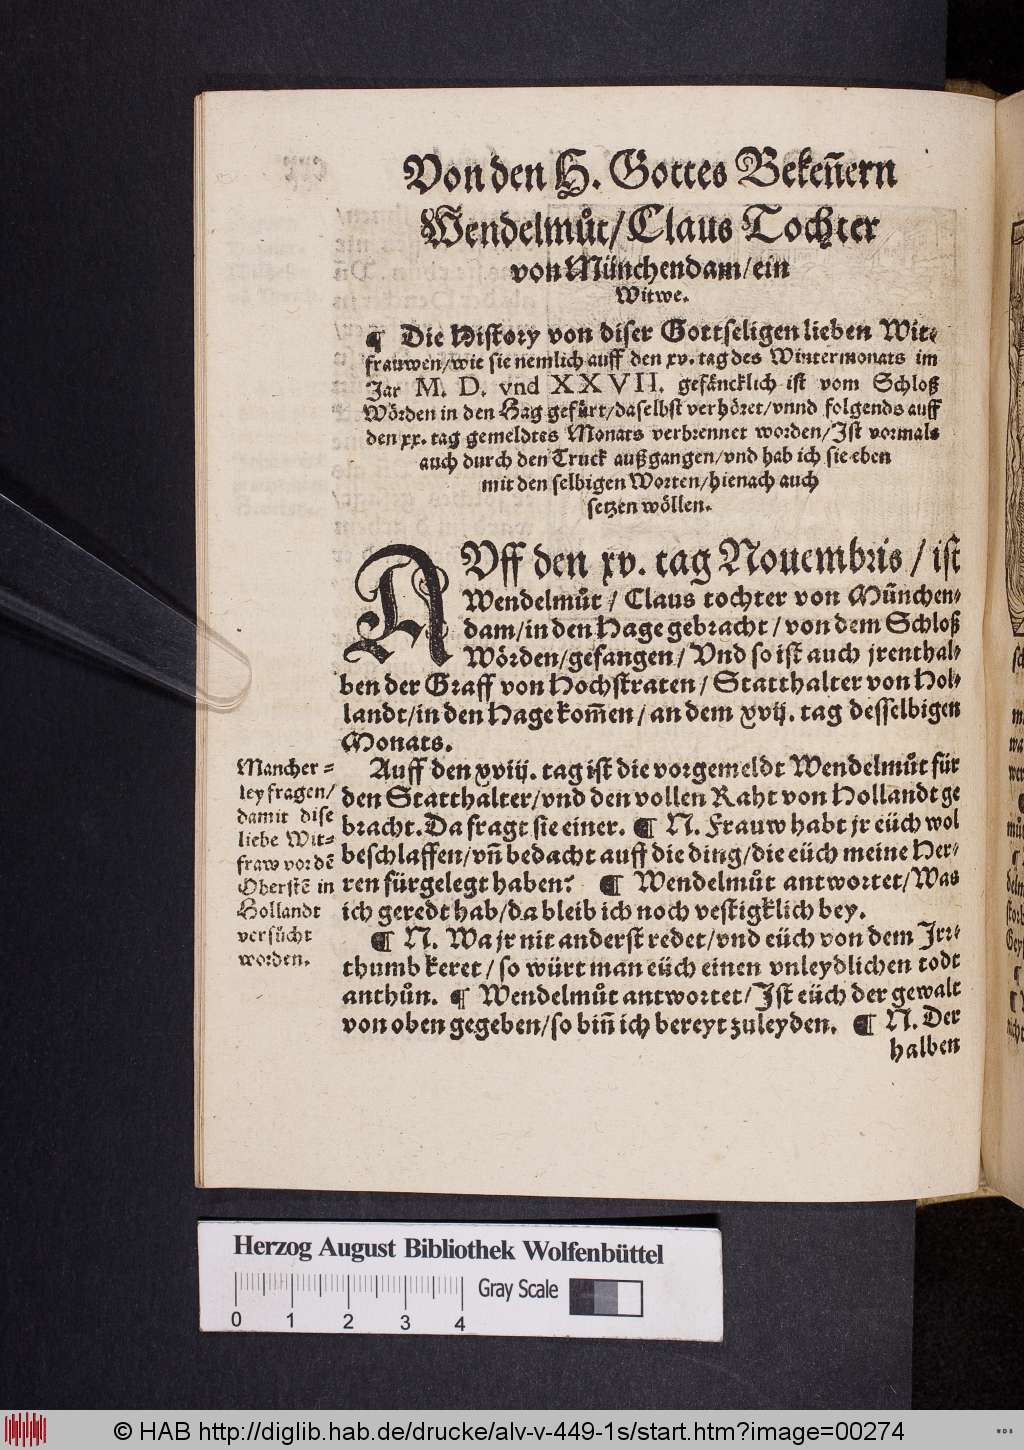 Von den H. Gottes Bekeñern
Wendelmůt/Claus Tochter
von Münchendam/ein
Witwe.
¶ Die History von diser Gottseligen lieben Wit-
frauwen/wie sie nemlich auff den xv. tag des Wintermonats im
Jar M. D. vnd XXVII. gefäncklich ist vom Schloß
Wörden in den Hag gefürt/daselbst verhöret/vnnd folgends auff
den xx. tag gemeldtes Monats verbrennet worden/Ist vormals
auch durch den Truck außgangen/vnd hab ich sie eben
mit den selbigen Worten/hienach auch
setzen wöllen.
AVff den xv. tag Nouembris / ist
Wendelmůt / Claus tochter von München-
dam/in den Hage gebracht / von dem Schloß
Wörden/gefangen/ Vnd so ist auch jrenthal-
ben der Graff von Hochstraten / Statthalter von Hol-
landt/in den Hage kom̃en / an dem xvij. tag desselbigen
Monats.
Auff den xviij. tag ist die vorgemeldt Wendelmůt für
den Statthalter/vnd den vollen Raht von Hollandt ge
bracht. Da fragt sie einer. ¶ N. Frauw habt jr eüch wol
beschlaffen/vñ bedacht auff die ding/die eüch meine Her-
ren fürgelegt haben? ¶ Wendelmůt antwortet/Was
ich geredt hab/da bleib ich noch vestigklich bey.
¶ N. Wa jr nit anderst redet/vnd eüch von dem Irr-
thumb keret / so würt man eüch einen vnleydlichen todt
anthůn. ¶ Wendelmůt antwortet/Ist eüch der gewalt
von oben gegeben/so biñ ich bereyt zuleyden. ¶ N. Der
halben
Mancher-
ley fragen/
damit dise
liebe Wit-
fraw vor dẽ
Oberstẽ in
Hollandt
versücht
worden.
Herzog August Bibliothek Wolfenbüttel
Gray Scale
0 1 2 3 4
© HAB http://diglib.hab.de/drucke/alv-v-449-1s/start.htm?image=00274
WDB